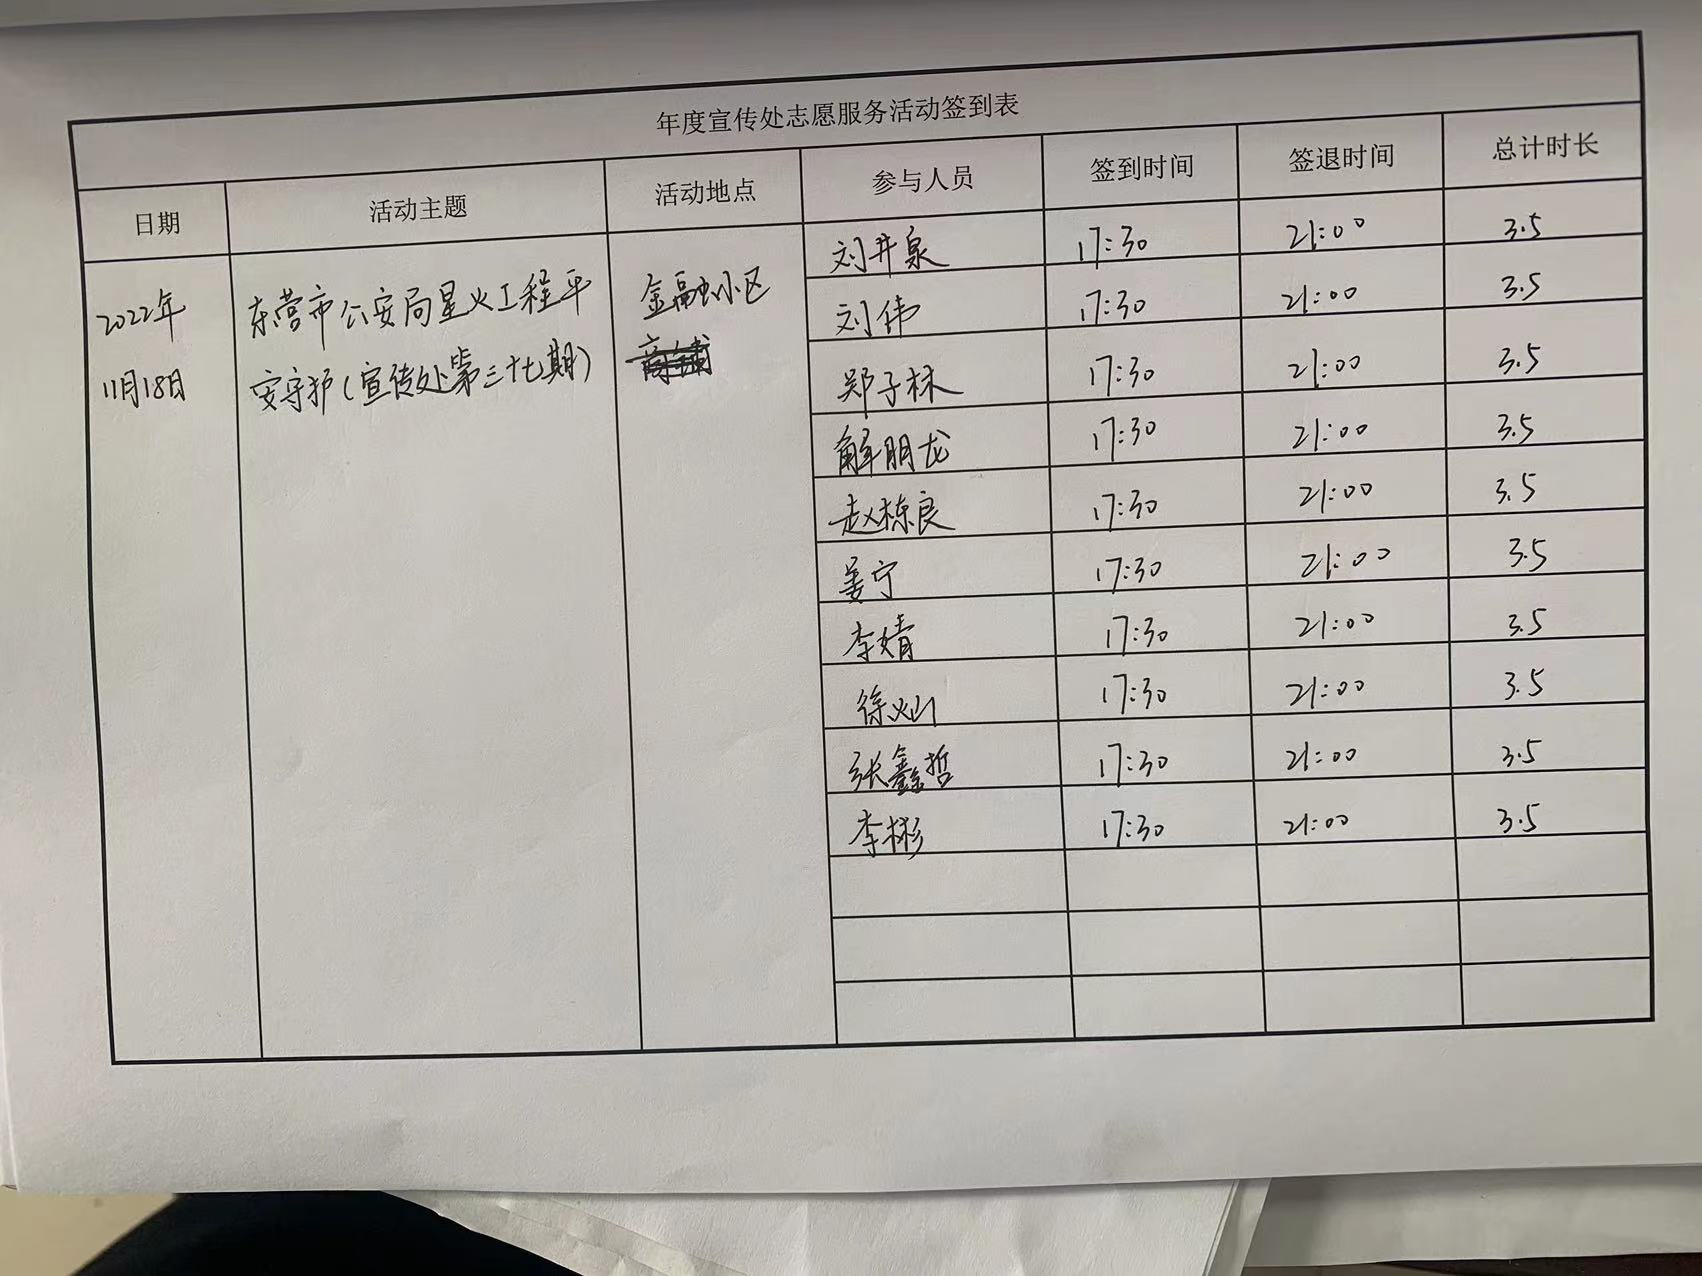 年度宣传处志愿服务活动签到表
日期 活动主题 活动地点 参与人员 签到时间 签退时间 总计时长
2022年
11月18日
东营市公安局星火工程平
安守护(宣传处第三十七期)
金融小区
刘井泉 17:30 21:00 3.5
刘伟 17:30 21:00 3.5
郑子林 17:30 21:00 3.5
解朋龙 17:30 21:00 3.5
赵栋良 17:30 21:00 3.5
姜宁 17:30 21:00 3.5
李婧 17:30 21:00 3.5
徐灿 17:30 21:00 3.5
张鑫哲 17:30 21:00 3.5
李彬 17:30 21:00 3.5